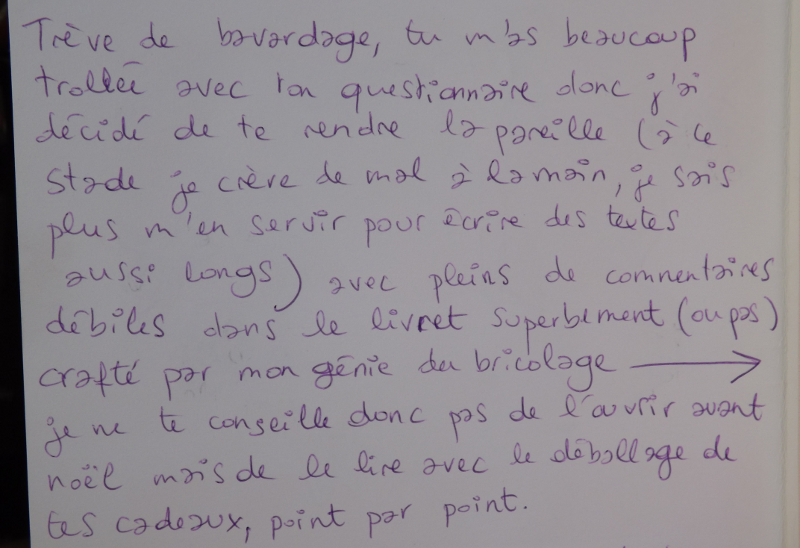 Trève de bavardage, tu m'as beaucoup
trollée avec ton questionnaire donc j'ai
décidé de te rendre la pareille (à ce
stade je crève de mal à la main, je sais
plus m'en servir pour écrire des textes
aussi longs) avec pleins de commentaires
débiles dans le livret superbement (ou pas)
crafté par mon génie du bricolage →
je ne te conseille donc pas de l'ouvrir avant
noël mais de le lire avec le déballage de
tes cadeaux, point par point.